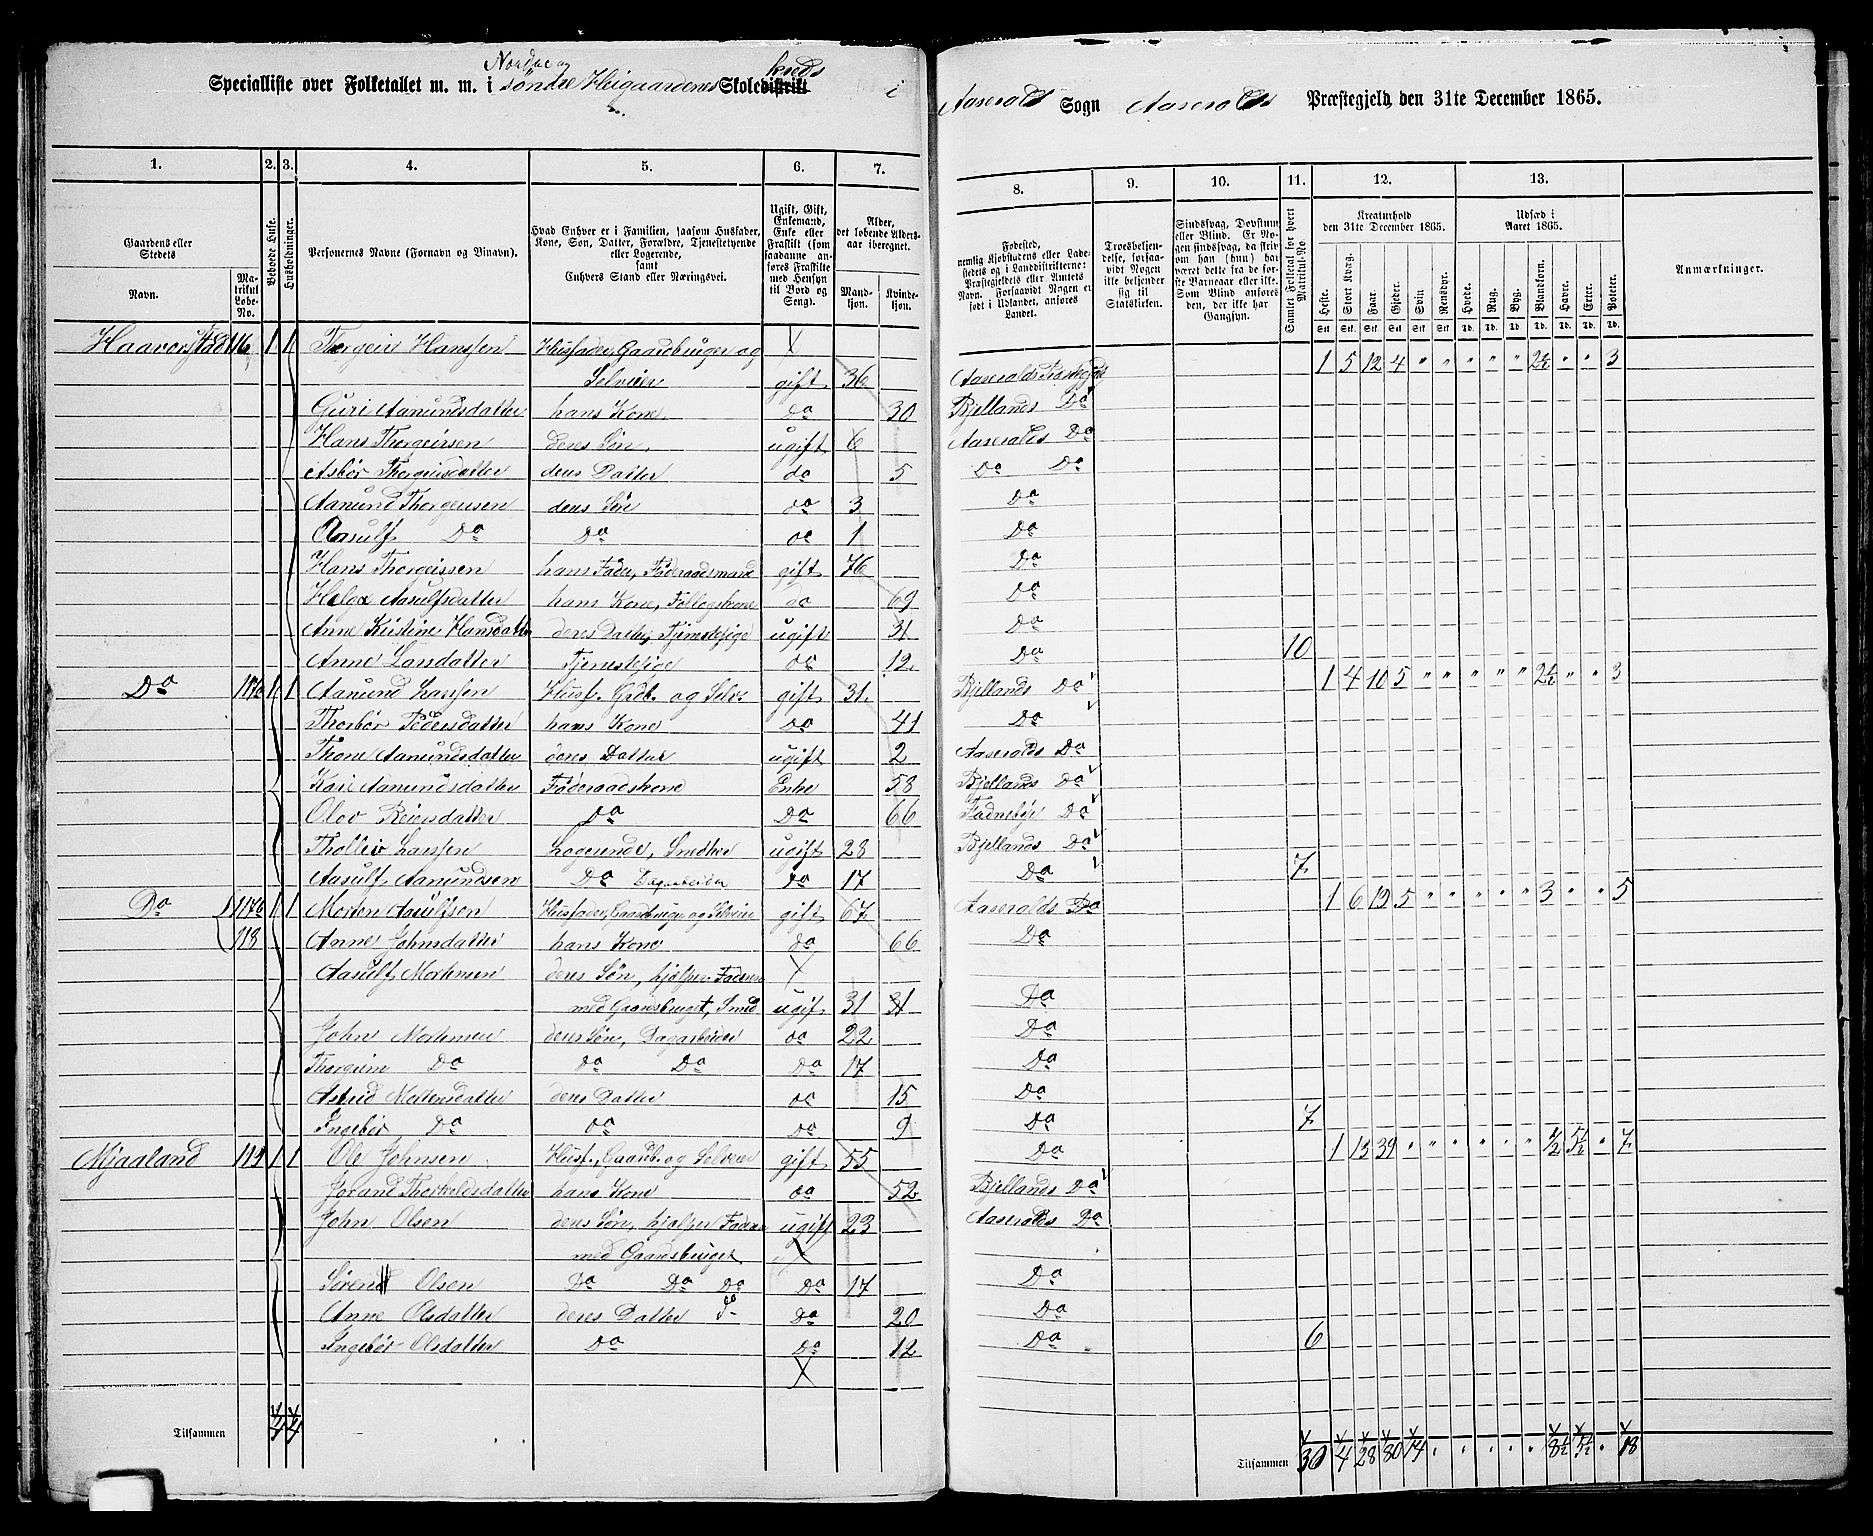 Nordre og
Specialliste over Folketallet m. m. i søndre Heigaardenes Skoledistrikt kreds i
Aaseralds Sogn Aaseralds Præstegjeld den 31te December 1865.
1. 2. 3. 4. 5. 6. 7. 8. 9. 10. 11. 12. 13.
Gaardens eller Stedets Navn. Matrikul Løbe-No. Beboede Huse. Husholdninger. Personernes Navne (Fornavn og Tilnavn).
Hvad Enhver er i Familien, saasom Husfader, Kone, Søn, Datter, Forældre, Tjenestetyende eller Logerende, samt Enhvers Stand eller Næringsvei.
Ugift, Gift, Enkemand, Enke eller Fraskilt (som saadanne anføres Fraskilte med Hensyn til Bord og Seng).
Alder, det løbende Alders-aar iberegnet. Mandkjøn. Kvindekjøn.
Fødested, nemlig Kjøbstadens eller Ladestedets og i Landdistrikterne: Præstegjeldets eller Amtets Navn. Forsaavidt Nogen er født i Udlandet, anføres Landet.
Troesbekjendelse, forsaavidt Nogen ikke bekjender sig til Statskirken.
Sindssvag, Døvstum eller Blind. Er Nogen sindssvag, da skrives om han (hun) har været dette fra de første Barneaar eller ikke. Som Blind anføres den, der ikke har Gangsyn.
Samlet Folketal for hvert Matrikul-No.
Kreaturhold den 31te December 1865. Heste. Stort Kvæg. Faar. Gjeder. Svin. Rensdyr.
Udsæd i Aaret 1865. Hvede. Rug. Byg. Blandkorn. Havre. Erter. Poteter.
Anmærkninger.
Stk. Stk. Stk. Stk. Stk. Stk. Td. Td. Td. Td. Td. Td. Td.
Haaverstad 116 1 1 Thorgeir Hanssen Husfader, Gaardbruger og X 1 5 12 4 " " " " " 2½ " " 3
Selveier gift 36 Aaseralds Præstegjds
Guri Aamundsdatter hans Kone do 30 Bjellands Do
Hans Thorgeirssen deres Søn ugift 6 Aaseralds Do
Asbør Thorgeirsdatter deres Datter do 5 Do Do
Aamund Thorgeirssen deres Søn do 3 Do
Aasulf Do Do do 1 Do
Hans Thorgeirssen hans Fader, Føderaadsmand gift 76 Do
Helga Aasulfsdatter hans Kone, do 69 Do
Anne Kristine Hansdatter deres Datter, Tjenestepige ugift 31 Do
Anne Larsdatter Tjenestepige do 12 Do 10
Do 117a 1 1 Aamund Larssen Husf. Grdb. og Selv. gift 31 Bjellands Do 1 4 10 5 " " " " " 2½ " " 3
Thorbør Pedersdatter hans Kone do 41 Do
Thone Aamundsdatter deres Datter ugift 2 Aaseralds Do
Kari Aamundsdatter Føderaadskone Enke 58 Bjellands Do
Olov Reiersdatter Do Do 66 Do
Thollev Larssen Logerende, Snedker ugift 28 Bjellands Do
Aasulf Aamundsen Do Dagarbeider do 17 Do 7
Do 117b 1 1 Morten Aasulfsen Husfader, Gaardbruger og Selveier gift 67 Aaseralds Do 1 6 19 5 " " " " " 3 " " 5
118 Anne Johnsdatter hans Kone do 66 Do
Aasulf Mortensen deres Søn, hjelper Faderen X
med Gaardsbruget, Smed ugift 31 31 Do
John Mortensen deres Søn, Dagarbeider do 22 Do
Thorgeim Do Do Do Do 17 Do
Astrid Mortensdatter deres Datter do 15 Do
Ingebør Do do Do 9 Do 7
Mjaaland 119 1 1 Ole Johnsen Husf., Gaardb. og Selveier gift 55 Do 1 13 39 " " " " " " ½ 5½ " 7
Jorand Thorkeldsdatter hans Kone do 52 Bjellands Do
John Olsen deres Søn, hjelper Faderen ugift 23 Aaseralds Do
med Gaardsbruget X
Søren Olsen Do Do Do Do 17 Do
Anne Olsdatter deres Datter Do 20 Do
Ingebør Olsdatter Do Do 12 Do 6
X
Tilsammen 4 4 Tilsammen 30 4 28 80 14 " " " " " 8½ 5½ " 18